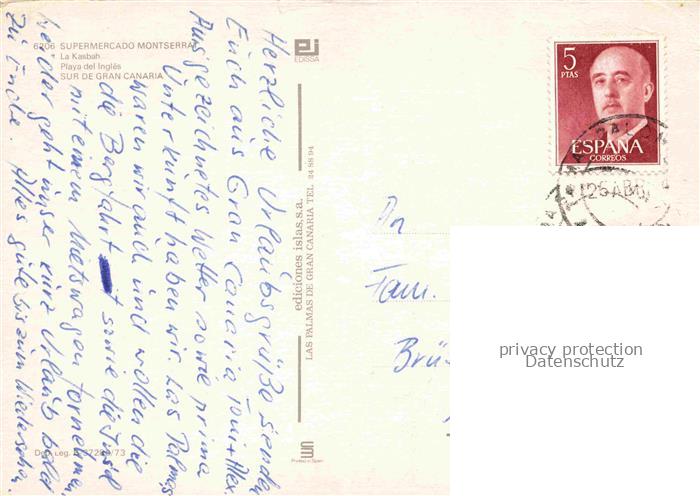 6206 SUPERMERCADO MONTSERRAT
La Kasbah
Playa del Inglés
SUR DE GRAN CANARIA
EDISSA
Herzliche Urlaubsgrüße senden
Euch aus Gran Canaria Toni + Alex.
Ausgezeichnetes Wetter sowie prima
Unterkunft haben wir. Las Palmas
waren wir auch und wollen die
die Bergfahrt sowie die Insel
mit einem Mietswagen fornehmen.
Leider geht unser kurz Urlaub bald
zu Ende. Alles gute bis zum Wiedersehen
Dep. Leg. B. 37280/73
ediciones islas, s.a.
LAS PALMAS DE GRAN CANARIA TEL. 24 88 94
Printed in Spain
5
PTAS
ESPAÑA
CORREOS
An
Fam.
Brü
privacy protection
Datenschutz